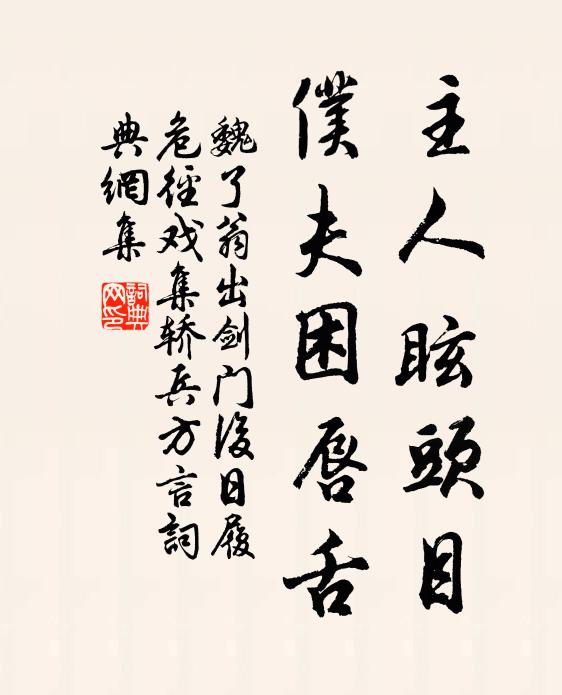 主人眩頭目
僕夫困唇舌
魏了翁出剑门後日履
危徑戏集轿兵方言詞
典網集
詞典網印